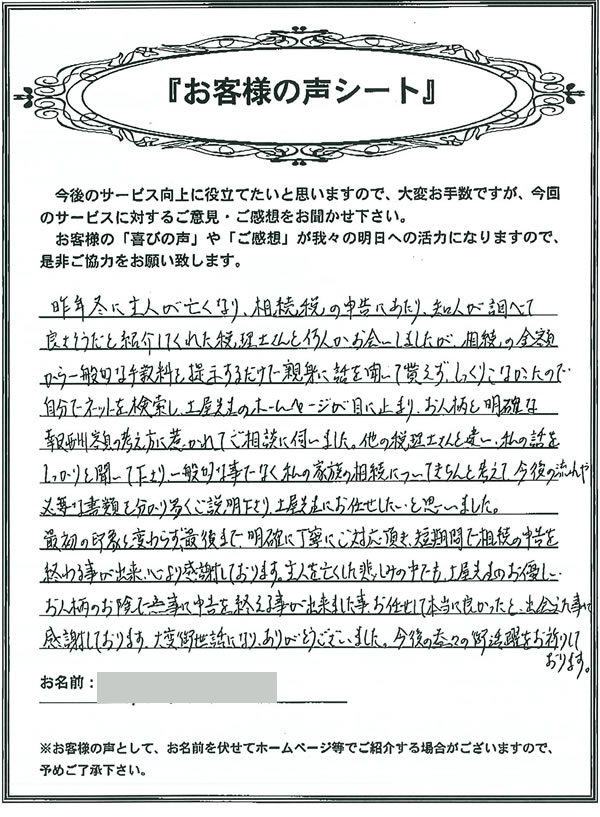 『お客様の声シート』
今後のサービス向上に役立てたいと思いますので、大変お手数ですが、今回
のサービスに対するご意見・ご感想をお聞かせ下さい。
お客様の「喜びの声」や「ご感想」が我々の明日への活力になりますので、
是非ご協力をお願い致します。
昨年冬に主人が亡くなり、相続税の申告にあたり、知人が調べて
良さそうだと紹介してくれた税理士さんと何人かお会いしましたが、相続の全額
から一般的な手数料を提示するだけで親身に話を聞いて貰えず、しっくりこなかったので
自分でネットを検索し、土屋先生のホームページが目に止まり、お人柄と明確な
報酬額の考え方に惹かれてご相談に伺いました。他の税理士さんと違い、私の話を
しっかりと聞いて下さり、一般的な事でなく私の家族の相続についてきちんと考えて今後の流れや
必要な書類を分かり易くご説明下さり、土屋先生にお任せしたいと思いました。
最初の印象と変わらず、最後まで、明確に丁寧にご対応頂き、短期間で相続の申告を
終わる事が出来、心より感謝しております。主人を亡くした悲しみの中でも、土屋先生のお優しい
お人柄のお陰で無事に申告を終える事が出来ました事、お任せして本当に良かったと、出会えた事に
感謝しております。大変御世話になり、ありがとうございました。今後の益々の御活躍をお祈りして
おります。
お名前：
※お客様の声として、お名前を伏せてホームページ等でご紹介する場合がございますので、
予めご了承下さい。